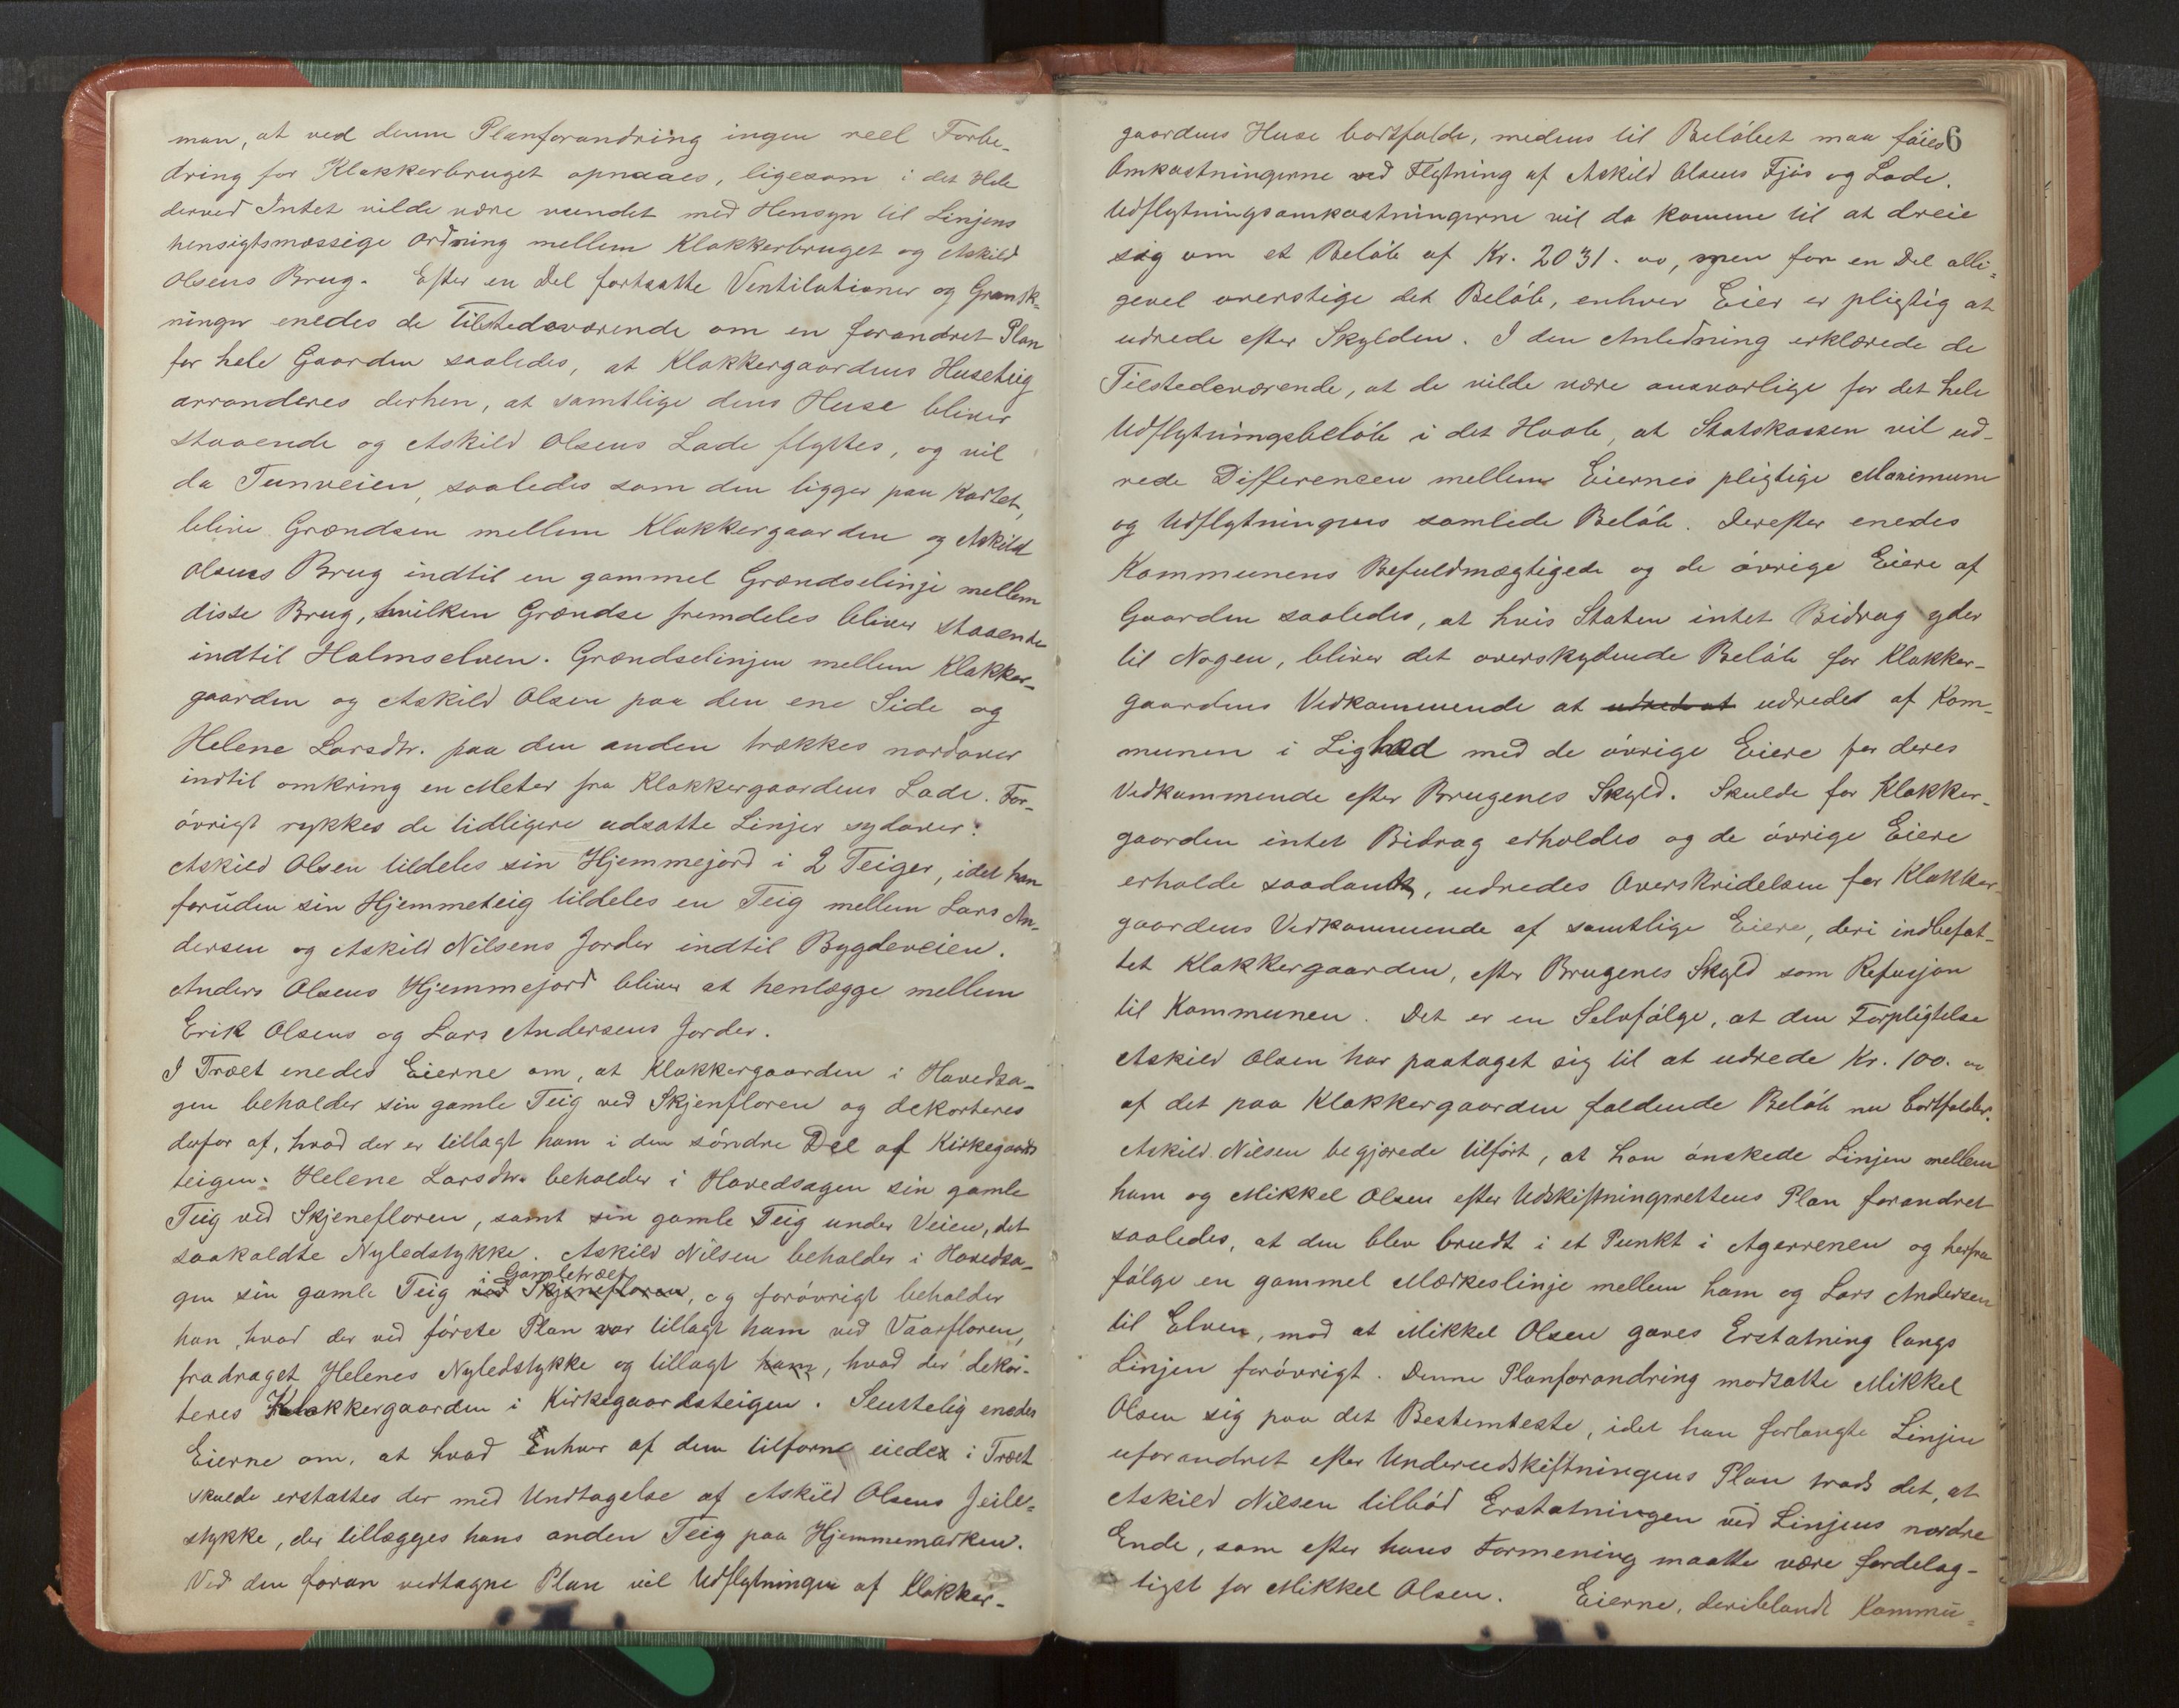 man, at ved denne Planforandring ingen reel Forbe-
dring for Klokkerbruget opnaaes, ligesom i det Hele
derved Intet vilde være vundet med Hensyn til Linjens
hensigtsmæssige Ordning mellem Klokkerbruget og Askild
Olsens Brug. Efter en Del fortsatte Ventilationer og Gransk-
ninger enedes de Tilstedeværende om en forandret Plan
for hele Gaarden saaledes, at Klokkergaardens Huseteig
arranderes derhen, at samtlige dens Huse bliver
staaende og Askild Olsens Lade flyttes, og vil
da Tunveien, saaledes som den ligger paa Kartet,
blive Grændsen mellem Klokkergaarden og Askild
Olsens Brug indtil en gammel Grændselinje mellem
disse Brug, hvilken Grændse fremdeles bliver staaende
indtil Holmselven. Grændselinjen mellem Klokker-
gaarden og Askild Olsen paa den ene Side og
Helene Larsdtr. paa den anden trækkes nordover
indtil omkring en Meter fra Klokkergaardens Lade. For-
øvrigt rykkes de tidligere udsatte Linjer sydover.
Askild Olsen tildeles sin Hjemmejord i 2 Teiger, idet han
foruden sin Hjemmeteig tildeles en Teig mellem Lars An-
dersen og Askild Nilsens Jorder indtil Bygdeveien.
Anders Olsens Hjemmejord bliver at henlægge mellem
Erik Olsens og Lars Andersens Jorder.
I Træet enedes Eierne om, at Klokkergaarden i Havedsa-
gen beholder sin gamle Teig ved Skjenfloren og dekorteres
derfor af, hvad der er tillagt ham i den søndre Del af Kirkegaards
teigen. Helene Larsdtr. beholder i Havedsagen sin gamle
Teig ved Skjenefloren, samt sin gamle Teig under Veien, det
saakaldte Nyledstykke. Askild Nilsen beholder i Havedsa-
i Gamletræet
gen sin gamle Teig ved Skjenefloren, og forøvrigt beholder
han, hvad der ved første Plan var tillagt ham ved Vaarfloren,
fradraget Helenes Nyledstykke og tillagt ham, hvad der dekor-
teres Klokkergaarden i Kirkegaardsteigen. Sluttelig enedes
Eierne om, at hvad Enhver af dem tilforne eiede i Træet
skulde erstattes der med Undtagelse af Askild Olsens Jeile-
stykke, der tillægges hans anden Teig paa Hjemmemarken.
Ved den foran vedtagne Plan vil Udflytningen af Klokker-
6
gaardens Huse bortfalde, medens til Beløbet maa føies
Omkostningerne ved Flytning af Askild Olsens Fjøs og Lade.
Udflytningsomkostningerne vil da komme til at dreie
sig om et Beløb af Kr. 2031.00, men for en Del alli-
gevel overstige det Beløb, enhver Eier er pligtig at
udrede efter Skylden. I den Anledning erklærede de
Tilstedeværende, at de vilde være ansvarlige for det hele
Udflytningsbeløb i det Haab, at Statskassen vil ud-
rede Differencen mellem Eiernes pligtige Maximum
og Udflytningens samlede Beløb. Derefter enedes
Kommunens Befuldmægtigede og de øvrige Eiere af
Gaarden saaledes, at hvis Staten intet Bidrag yder
til Nogen, bliver det overskydende Beløb for Klokker-
gaardens Vedkommende at udred at udredes af Kom-
munen i Lighed med de øvrige Eiere for deres
Vedkommende efter Brugenes Skyld. Skulde for Klokker-
gaarden intet Bidrag erholdes og de øvrige Eiere
erholde saadant, udredes Overskridelsen for Klokker-
gaardens Vedkommende af samtlige Eiere, deri indbefat-
tet Klokkergaarden, efter Brugenes Skyld som Refusjon
til Kommunen. Det er en Selvfølge, at den Forpligtelse
Askild Olsen har paataget sig til at udrede Kr. 100.00
af det paa Klokkergaarden faldende Beløb nu bortfalder.
Askild Nilsen begjærede tilført, at han ønskede Linjen mellem
ham og Mikkel Olsen efter Udskiftningsrettens Plan forandret
saaledes, at den blev brudt i et Punkt i Agerrenen og herfra
følge en gammel Mærkeslinje mellem ham og Lars Andersen
til Elven, mod at Mikkel Olsen gaves Erstatning langs
Linjen forøvrigt. Denne Planforandring modsatte Mikkel
Olsen sig paa det Bestemteste, idet han forlangte Linjen
uforandret efter Underudskiftningens Plan trods det, at
Askild Nilsen tilbød Erstatningen ved Linjens nordre
Ende, som efter hans Formening maatte være fordelag-
tigst for Mikkel Olsen. Eierne, deriblandt Kommu-